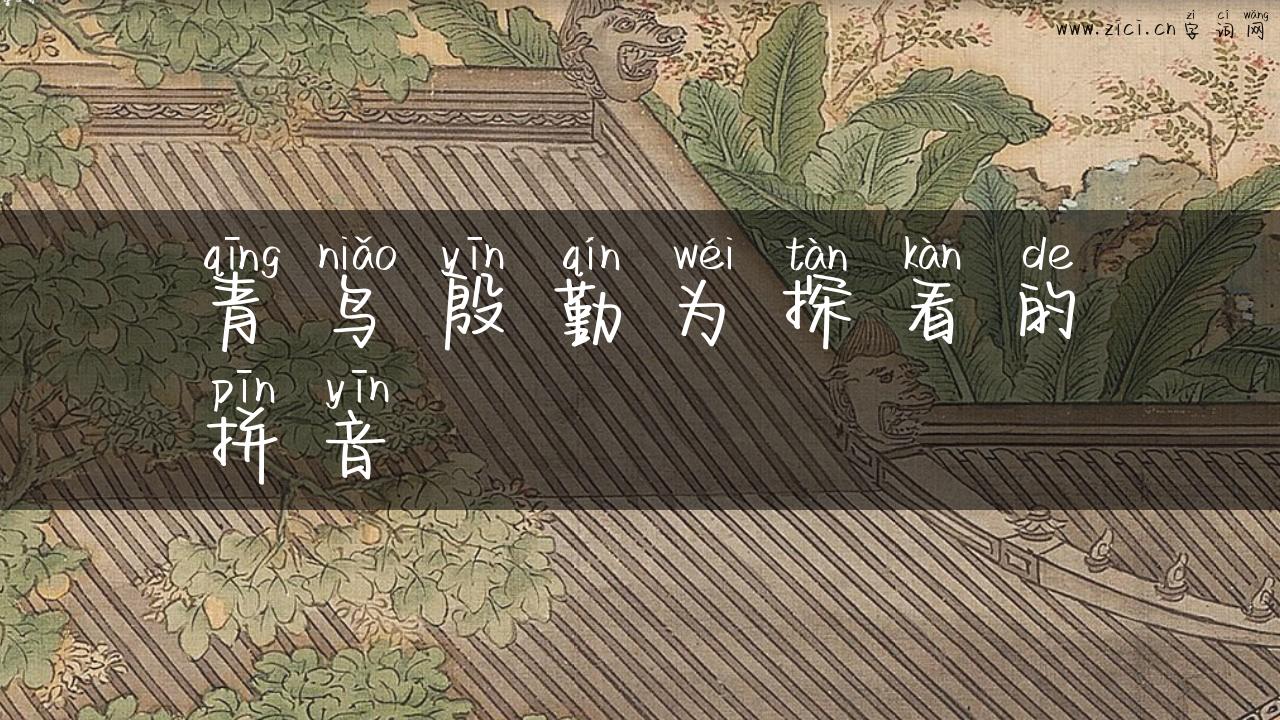 zì cí wǎng
www.zici.cn 字词网
qīng niǎo yīn qín wéi tàn kàn de
青鸟殷勤为探看的
pīn yīn
拼音